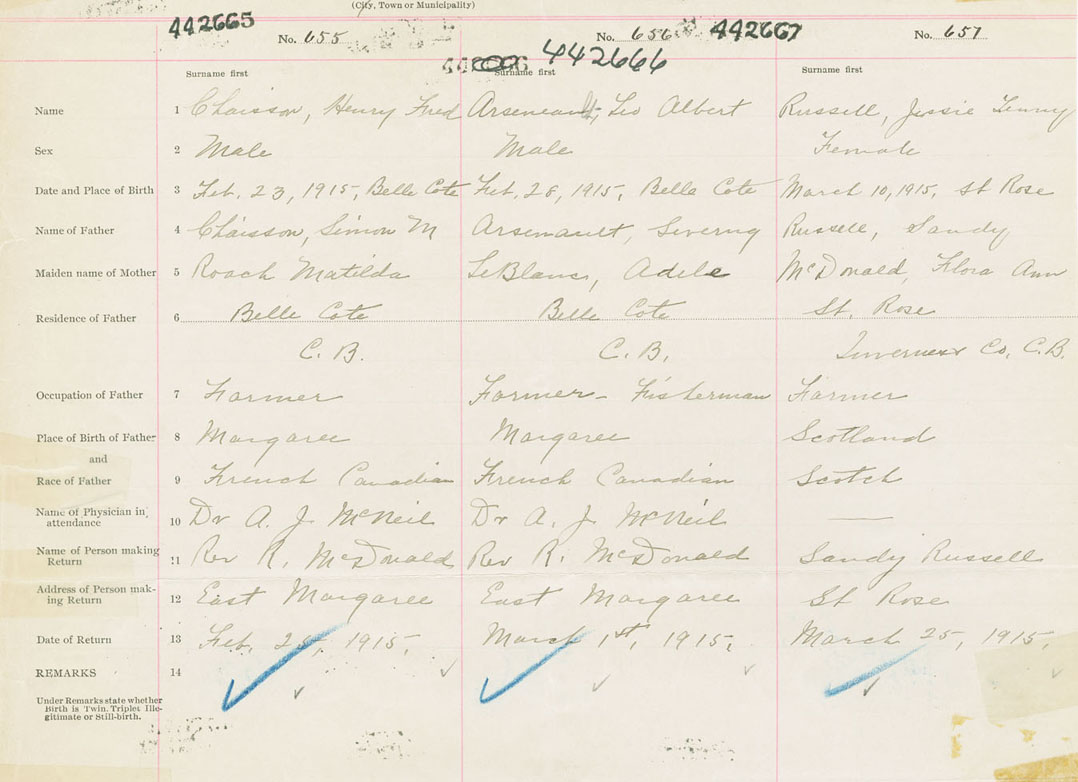 (City, Town or Municipality)
442665 442667
No. 655 No. 656 No. 657
442666
Surname first Surname first Surname first
Name 1 Chaisson, Henry Fred Arsenault, Leo Albert Russell, Jessie
Sex 2 Male Male Female
Date and Place of Birth 3 Feb. 23, 1915, Belle Cote Feb. 28, 1915, Belle Cote March 10, 1915, St Rose
Name of Father 4 Chaisson, Simon M Arsenault, Russell, Sandy
Maiden name of Mother 5 Roach Matilda LeBlanc, Adele McDonald, Flora Ann
Residence of Father 6 Belle Cote Belle Cote St. Rose
C. B. C. B. Inverness Co. C.B.
Occupation of Father 7 Farmer Farmer - Fisherman Farmer
Place of Birth of Father 8 Margaree Margaree Scotland
and
Race of Father 9 French Canadian French Canadian Scotch
Name of Physician in
attendance 10 Dr A. J. McNeil Dr A. J. McNeil —
Name of Person making
Return 11 Rev R. McDonald Rev R. McDonald Sandy Russell
Address of Person mak-
ing Return 12 East Margaree East Margaree St Rose
Date of Return 13 Feb. 25, 1915, March 1st, 1915, March 25, 1915,
REMARKS 14
Under Remarks state whether
Birth is Twin, Triplet Ille-
gitimate or Still-birth.